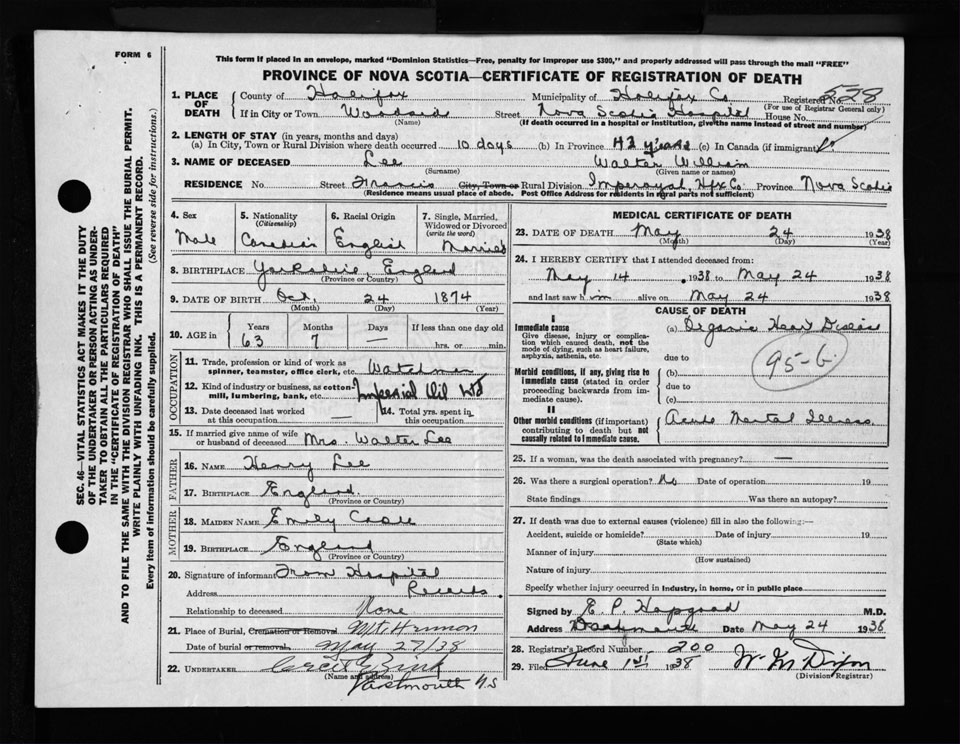 FORM 6
This form if placed in an envelope, marked "Dominion Statistics—Free, penalty for improper use $300," and properly addressed will pass through the mail "FREE"
PROVINCE OF NOVA SCOTIA—CERTIFICATE OF REGISTRATION OF DEATH
SEC. 46—VITAL STATISTICS ACT MAKES IT THE DUTY
OF THE UNDERTAKER OR PERSON ACTING AS UNDER-
TAKER TO OBTAIN ALL THE PARTICULARS REQUIRED
IN THE "CERTIFICATE OF REGISTRATION OF DEATH"
AND TO FILE THE SAME WITH THE DIVISION REGISTRAR WHO SHALL ISSUE THE BURIAL PERMIT.
WRITE PLAINLY WITH UNFADING INK. THIS IS A PERMANENT RECORD.
Every item of information should be carefully supplied. (See reverse side for instructions.)
1. PLACE OF DEATH
County of Halifax Municipality of Halifax Co Registered No. 528
(For use of Registrar General only)
If in City or Town Woodside Street Nova Scotia Hospital House No.
(Name) (If death occurred in a hospital or institution, give the name instead of street and number)
2. LENGTH OF STAY (in years, months and days)
(a) In City, Town or Rural Division where death occurred 10 days (b) In Province 42 years (c) In Canada (if immigrant)
3. NAME OF DECEASED Lee Walter William
(Surname) (Given name or names)
RESIDENCE No. Street Francis City, Town or Rural Division Imperoyal, Hfx Co. Province Nova Scotia
(Residence means usual place of abode. Post Office Address for residents in rural parts not sufficient)
4. Sex
Male
5. Nationality
(Citizenship)
Canadian
6. Racial Origin
English
7. Single, Married, Widowed or Divorced
(write the word)
Married
8. BIRTHPLACE Yorkshire, England
(Province or Country)
9. DATE OF BIRTH Oct. 24 1874
(Month) (Day) (Year)
10. AGE in Years Months Days If less than one day old
63 7 — hrs. or min.
OCCUPATION
11. Trade, profession or kind of work as
spinner, teamster, office clerk, etc. Watchman
12. Kind of industry or business, as cotton-
mill, lumbering, bank, etc. Imperial Oil Ltd
13. Date deceased last worked
at this occupation —
14. Total yrs. spent in
this occupation
15. If married give name of wife
or husband of deceased Mrs. Walter Lee
FATHER
16. NAME Henry Lee
17. BIRTHPLACE England
(Province or Country)
MOTHER
18. MAIDEN NAME Emily
19. BIRTHPLACE England
(Province or Country)
20. Signature of informant From Hospital
Address Records.
Relationship to deceased None
21. Place of Burial, Cremation or Removal Mt. Hermon
Date of burial or removal May 27/38
22. UNDERTAKER
(Name and address)
Dartmouth N.S
MEDICAL CERTIFICATE OF DEATH
23. DATE OF DEATH May 24 1938
(Month) (Day) (Year)
24. I HEREBY CERTIFY that I attended deceased from:
May 14 1938 to May 24 1938
and last saw him alive on May 24 1938
CAUSE OF DEATH
I
Immediate cause (a) Organic Heart Disease
Give disease, injury or complica-
tion which caused death, not the
mode of dying, such as heart failure,
asphyxia, asthenia, etc.
due to
95-b.
Morbid conditions, if any, giving rise to (b)
immediate cause (stated in order
proceeding backwards from im-
mediate cause).
due to
(c)
II
Other morbid conditions (if important)
contributing to death but not
causally related to immediate cause.
Acute Mental Illness.
25. If a woman, was the death associated with pregnancy? —
26. Was there a surgical operation? No Date of operation 19
State findings Was there an autopsy?
27. If death was due to external causes (violence) fill in also the following:—
Accident, suicide or homicide? Date of injury 19
(State which)
Manner of injury
(How sustained)
Nature of injury
Specify whether injury occurred in industry, in home, or in public place
Signed by E. P. Hapgood M.D.
Address Dartmouth Date May 24 1938
28. Registrar's Record Number 200
29. Filed June 1st 1938 W. M Dixon
(Division Registrar)